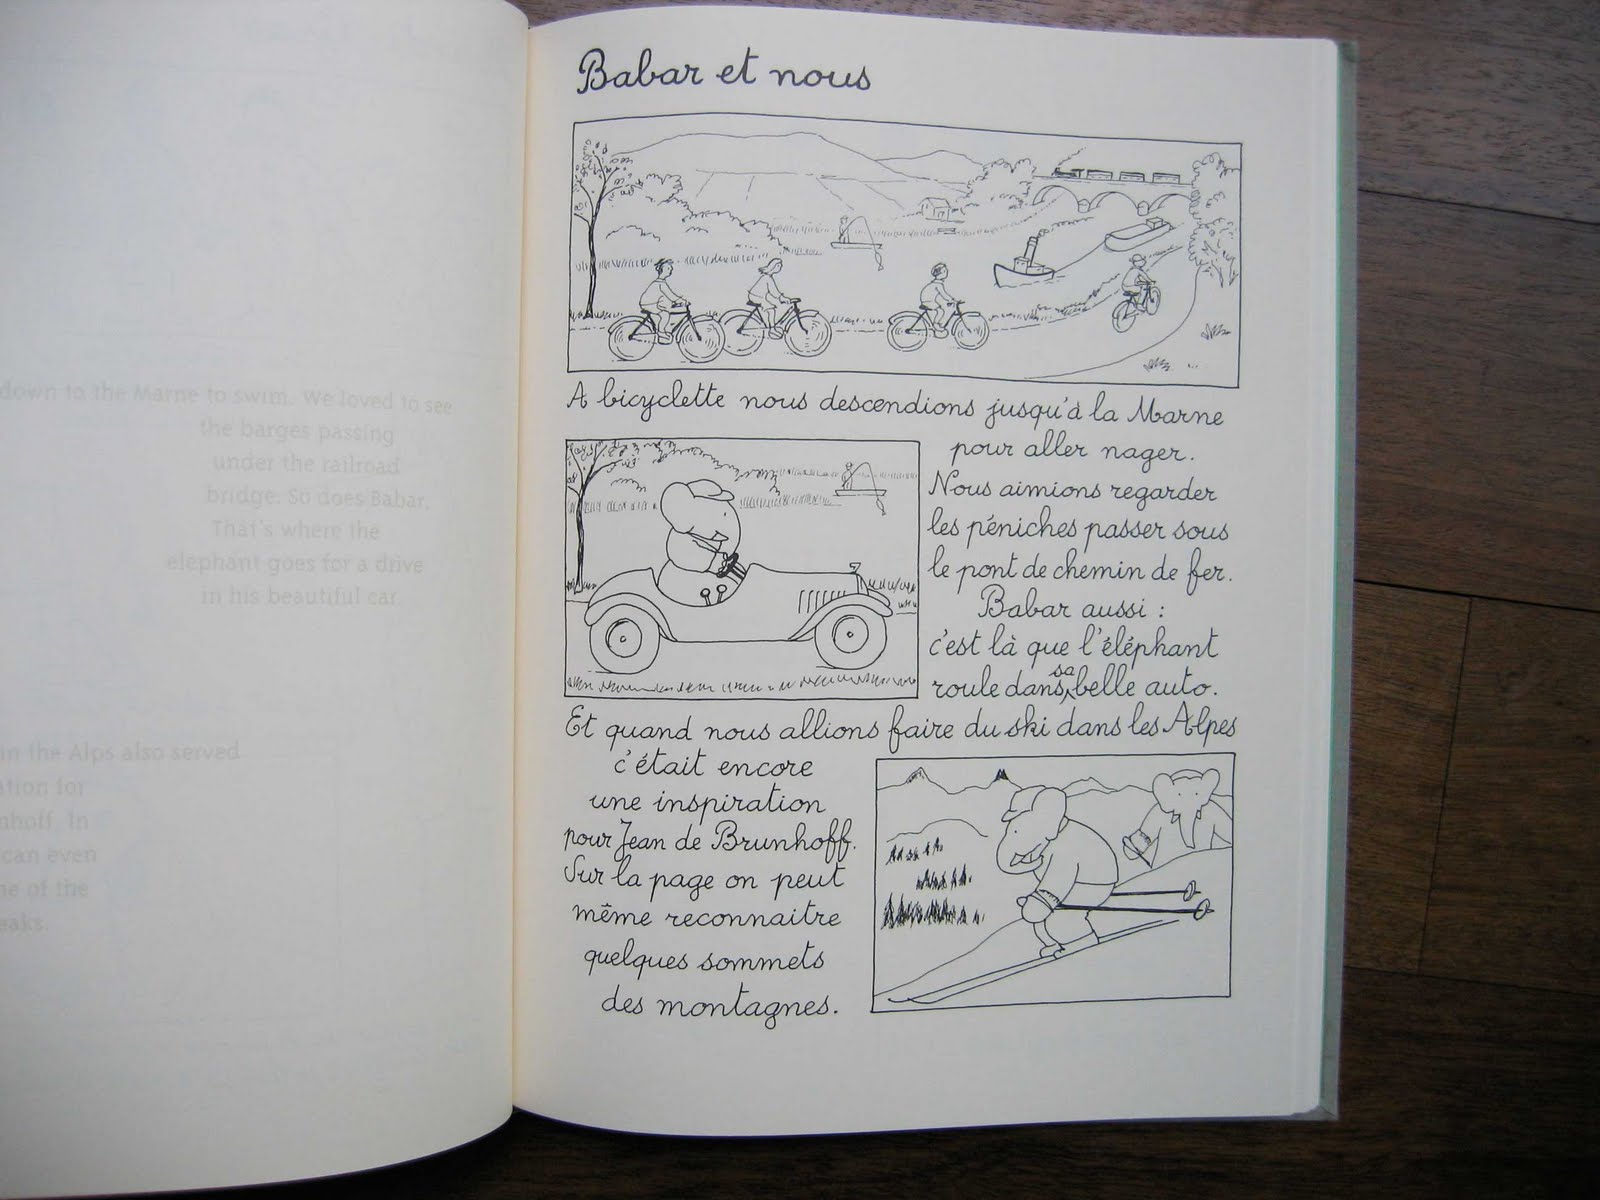 down to the Marne to swim. We loved to see
the barges passing
under the railroad
bridge. So does Babar.
That's where the
elephant goes for a drive
in his beautiful car.
in the Alps also served
ation for
nhoff. In
can even
ne of the
eaks.
Babar et nous
A bicyclette nous descendions jusqu'à la Marne
pour aller nager.
Nous aimions regarder
les péniches passer sous
le pont de chemin de fer.
Babar aussi :
c'est là que l'éléphant
roule dans sa belle auto.
Et quand nous allions faire du ski dans les Alpes
c'était encore
une inspiration
pour Jean de Brunhoff.
Sur la page on peut
même reconnaitre
quelques sommets
des montagnes.